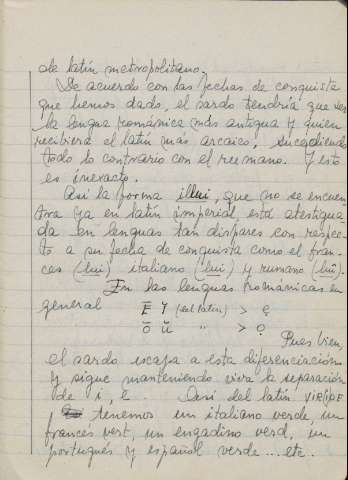 de latín metropolitano.
De acuerdo con las fechas de conquista
que hemos dado, el sardo tendría que ser
la lengua románica más antigua y quien
recibiera el latín más arcaico, sucediendo
todo lo contrario con el rumano. Y esto
es inexacto.
Así la forma illui, que no se encuen
tra ya en latín imperial, está atestigua
da en lenguas tan dispares con respec
to a su fecha de conquista como el fran-
ces (lui) italiano (lui) y rumano (lui).
En las lenguas románicas en
general Ē Ĭ (del latín) > ẹ
Ō Ŭ " > ọ
Pues bien,
el sardo escapa a esta diferenciación
y sigue manteniendo viva la separación
de i, e. Así del latín VIRIDE
tenemos un italiano verde, un
francés vert, un engadino verd, un
portugués y español verde.... etc.